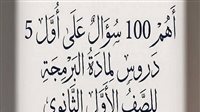 أَهَمُّ 100 سُؤَالٍ عَلَى أَوَّلِ 5
دُرُوسٍ لِمَادَّةِ الْبَرْمَجَةِ
لِلصَّفِّ الْأَوَّلِ الثَّانَوِيِّ